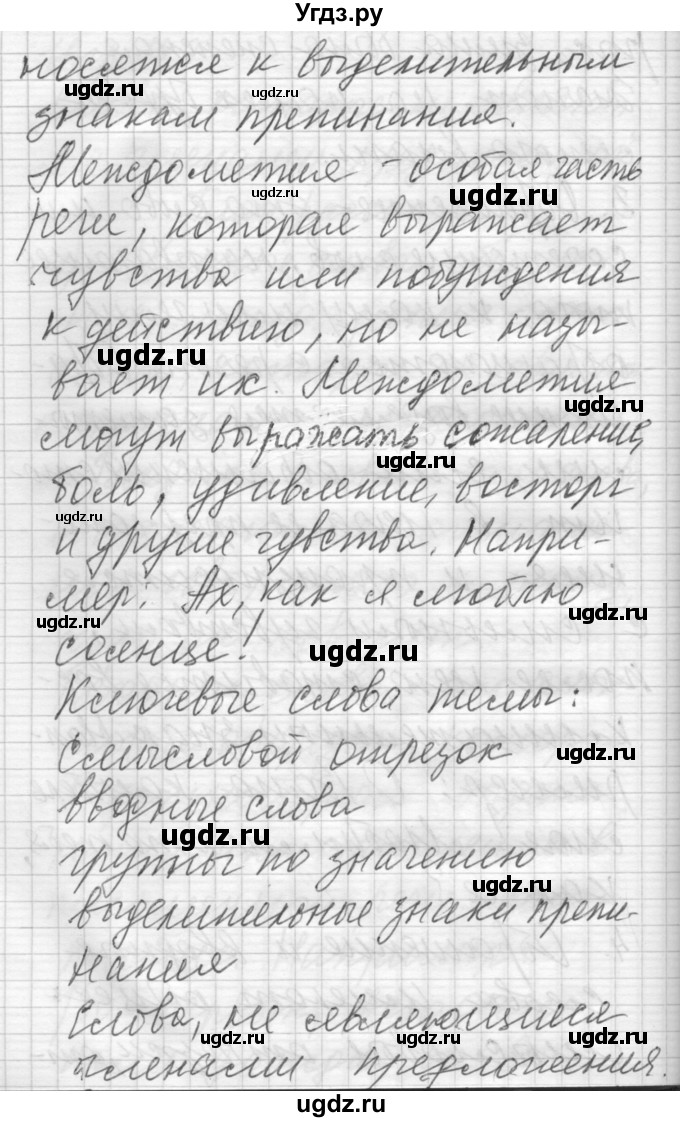 Угдз.ру
носятся к выделительным
ugdz.ru ugdz.ru
знакам препинания.
Междометия - особая часть
ugdz.ru ugdz.ru
речи, которая выражает
чувства или побуждения
к действию, но не назы-
ugdz.ru
вает их. Междометия
ugdz.ru
могут выражать сожаление,
ugdz.ru
боль, удивление, восторг
ugdz.ru
и другие чувства. Напри-
мер: Ах, как я люблю
ugdz.ru ugdz.ru
солнце!
ugdz.ru
Ключевые слова темы:
смысловой отрезок
ugdz.ru
вводные слова
ugdz.ru
группы по значению
ugdz.ru
выделительные знаки препи-
нания
слова, не являющиеся
ugdz.ru ugdz.ru ugdz.ru
членами предложения.
ugdz.ru